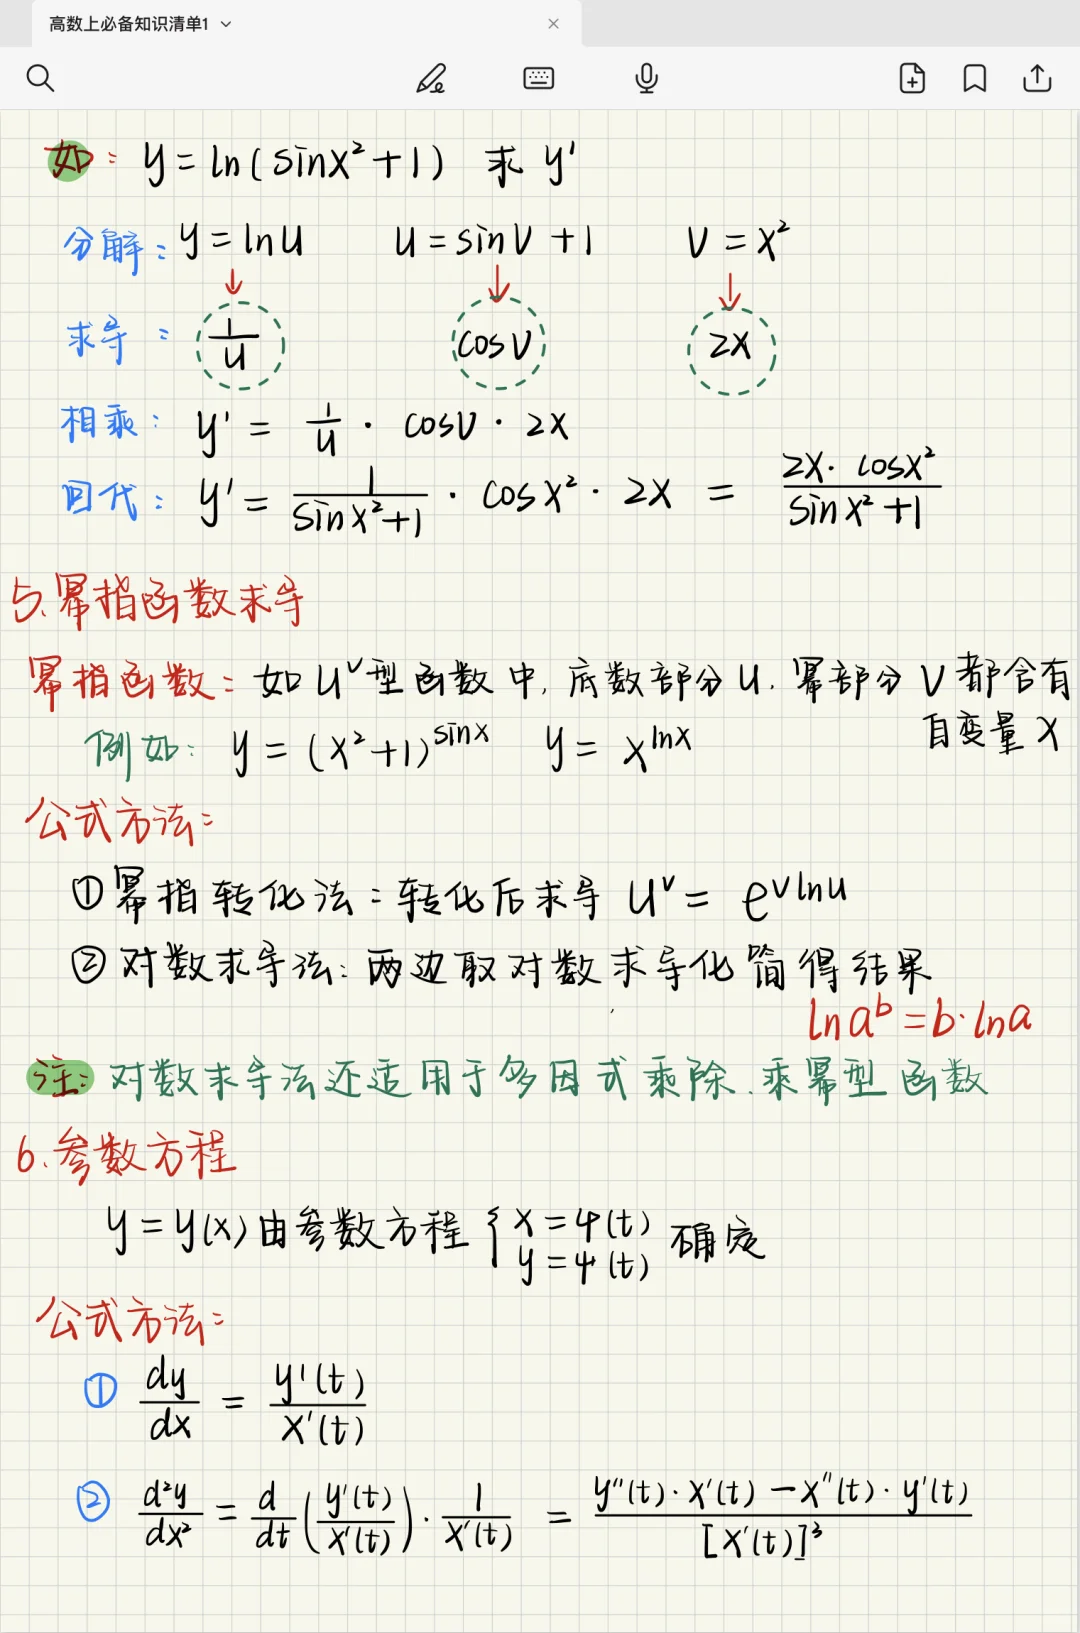 高数上必备知识清单1
如: y = ln(sinx²+1) 求 y'
分解: y = lnu u = sinv +1 v = x²
求导: 1/u cosv 2x
相乘: y' = 1/u · cosv · 2x
回代: y' = 1/(sinx²+1) · cosx² · 2x = 2x·cosx²/(sinx²+1)
5.幂指函数求导
幂指函数: 如 u^v 型函数中, 底数部分 u, 幂部分 v 都含有
自变量 x
例如: y = (x²+1)^sinx y = x^lnx
公式方法:
①幂指转化法: 转化后求导 u^v = e^(vlnu)
②对数求导法: 两边取对数求导化简得结果
lna^b = b·lna
注: 对数求导法还适用于多因式乘除、乘幂型函数
6.参数方程
y = y(x) 由参数方程 { x = φ(t) 确定
y = ψ(t)
公式方法:
① dy/dx = y'(t)/x'(t)
② d²y/dx² = d/dt (y'(t)/x'(t)) · 1/x'(t) = (y''(t)·x'(t) − x''(t)·y'(t))/[x'(t)]³